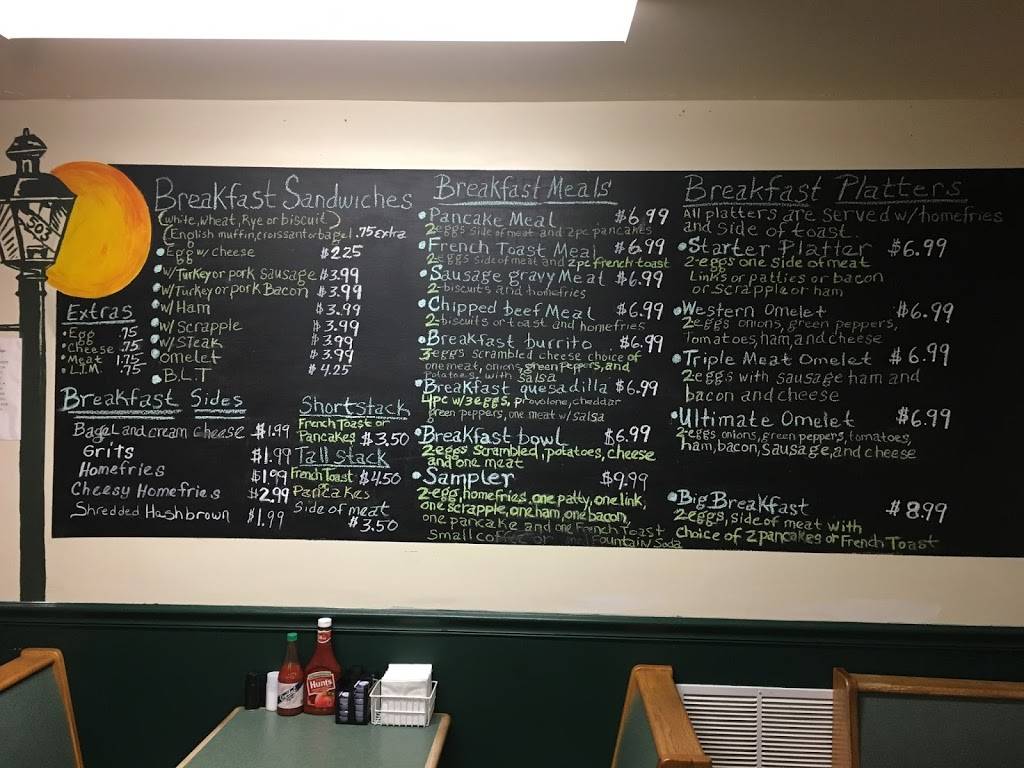 Breakfast Sandwiches
(white, wheat, Rye or biscuit)
(English muffin, croissant or bagel .75 Extra
Egg w/ cheese $2.25
w/ Turkey or pork Sausage $3.99
w/ Turkey or pork Bacon $3.99
w/ Ham $3.99
w/ Scrapple $3.99
w/ STeak $3.99
omelet $3.99
B.L.T $4.25
Extras
Egg .75
Cheese .75
Meat 1.75
L.T.M. .75
Breakfast Sides
Bagel and cream cheese $1.99
Grits $1.99
Homefries $1.99
Cheesy Homefries $2.99
Shredded Hashbrown $1.99
Short stack
French Toast or
Pancakes $3.50
Tall stack
French Toast $4.50
or
Pancakes
Side of meat
$3.50
Breakfast Meals
Pancake Meal $6.99
2 eggs side of meat and 2 pc pancakes
French Toast Meal $6.99
2 eggs side of meat and 2 pc french toast
Sausage gravy Meal $6.99
2-biscuits and homefries
Chipped beef Meal $6.99
2-biscuits or toast and homefries
Breakfast burrito $6.99
3 eggs scrambled cheese choice of
one meat, onions, green peppers, and
potatoes with salsa
Breakfast quesadilla $6.99
4pc w/ 3 eggs, provolone, cheddar
green peppers, one meat w/ salsa
Breakfast bowl $6.99
2 eggs scrambled, potatoes, cheese
and one meat
Sampler $9.99
2-egg, homefries, one patty, one link,
one scrapple, one ham, one bacon,
one pancake and one French Toast
Small coffee or Fountain Soda
Breakfast Platters
All platters are served w/ homefries
and side of toast.
Starter Platter $6.99
2-eggs one side of meat
Links or patties or bacon
or Scrapple or ham
Western Omelet $6.99
2 eggs onions, green peppers,
Tomatoes, ham, and cheese
Triple Meat Omelet $6.99
2 eggs with sausage ham and
bacon and cheese
Ultimate Omelet $6.99
2 eggs onions, green peppers, tomatoes,
ham, bacon, sausage, and cheese
Big Breakfast $8.99
2 eggs, side of meat with
choice of 2 pancakes or French Toast
Hunt's